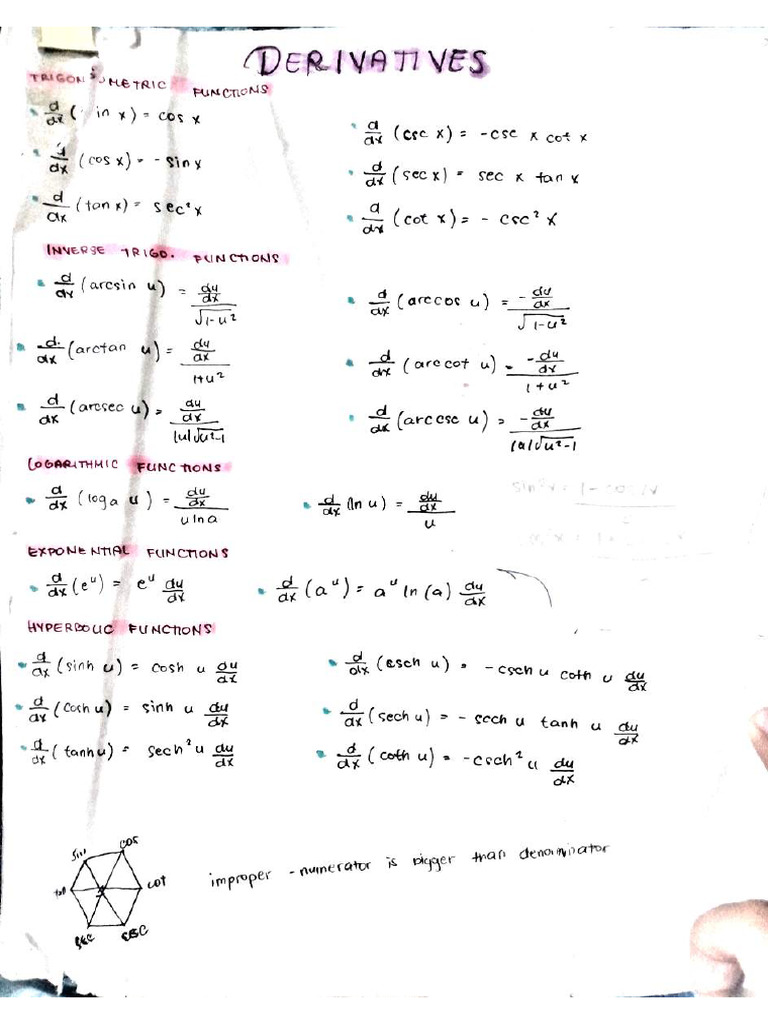 DERIVATIVES
TRIGONOMETRIC FUNCTIONS
d/dx ( in x) = cos x
d/dx (csc x) = -csc x cot x
d/dx (cos x) = - sin x
d/dx (sec x) = sec x tan x
d/dx (tan x) = sec² x
d/dx (cot x) = - csc² x
INVERSE TRIGO. FUNCTIONS
d/dx (arcsin u) = du/dx / √1-u²
d/dx (arccos u) = -du/dx / √1-u²
d/dx (arctan u) = du/dx / 1+u²
d/dx (arccot u) = -du/dx / 1+u²
d/dx (arcsec u) = du/dx / |u|√u²-1
d/dx (arccsc u) = -du/dx / |u|√u²-1
LOGARITHMIC FUNCTIONS
d/dx (loga u) = du/dx / u ln a
d/dx (ln u) = du/dx / u
EXPONENTIAL FUNCTIONS
d/dx (e^u) = e^u du/dx
d/dx (a^u) = a^u ln(a) du/dx
HYPERBOLIC FUNCTIONS
d/dx (sinh u) = cosh u du/dx
d/dx (csch u) = -csch u coth u du/dx
d/dx (cosh u) = sinh u du/dx
d/dx (sech u) = - sech u tanh u du/dx
d/dx (tanh u) = sech² u du/dx
d/dx (coth u) = -csch² u du/dx
sin cos
tan 1 cot
sec csc
improper - numerator is bigger than denominator